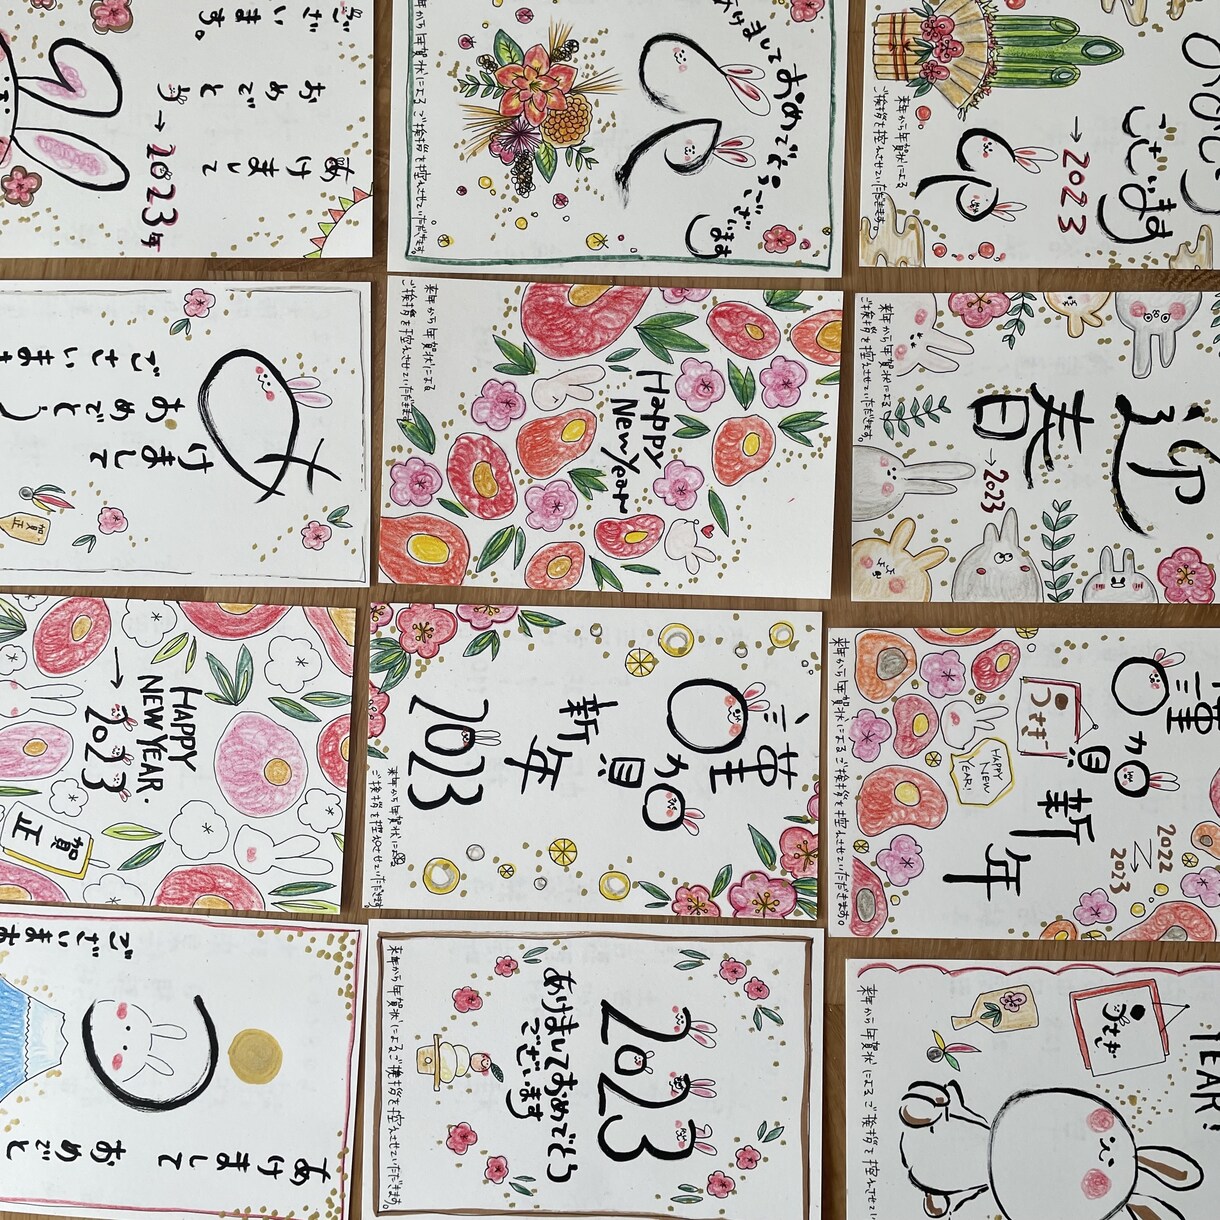 ございます。
おめでと
あけまして
→2023年
あけまして
おめでとうございます
来年から年賀状によるご挨拶を控えさせていただきます。
ございます
→2023
来年から年賀状による
ご挨拶を控えさせていただきます。
あ
けまして
おめでとう
ございま
賀正
Happy
New Year
来年から年賀状による
ご挨拶を控えさせていただきます。
迎
春
→2023
来年から年賀状による
ご挨拶を控えさせていただきます。
HAPPY
NEW YEAR.
→2023
賀正
謹賀
新年
2023
来年から年賀状による
ご挨拶を控えさせていただきます。
謹賀新年
うさぎ
HAPPY
NEW
YEAR!
2022
2023
来年から年賀状によるご挨拶を控えさせていただきます。
ございます
あけまして
おめでと
2023
あけましておめでとう
ございます
来年から年賀状によるご挨拶を控えさせていただきます。
YEAR!
うさぎ
来年から年賀状によるご挨拶を控えさせてい